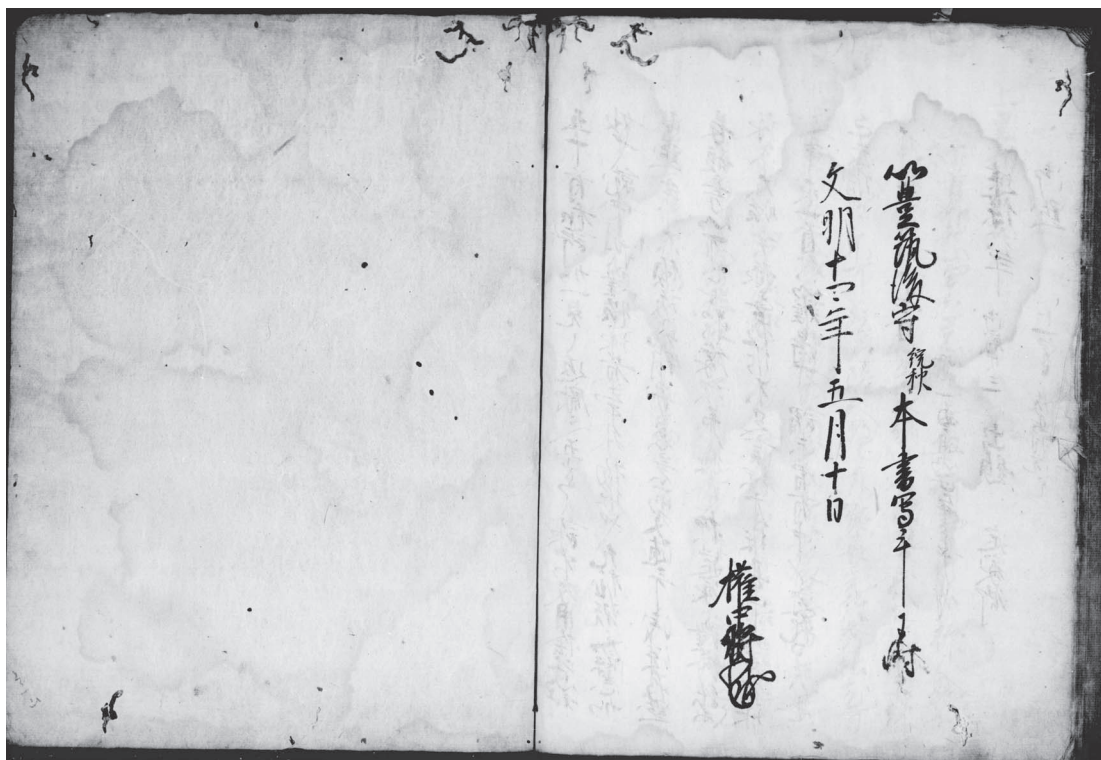 以豊筑後守統秋本書写之 于時
文明十四年五月十日
権中